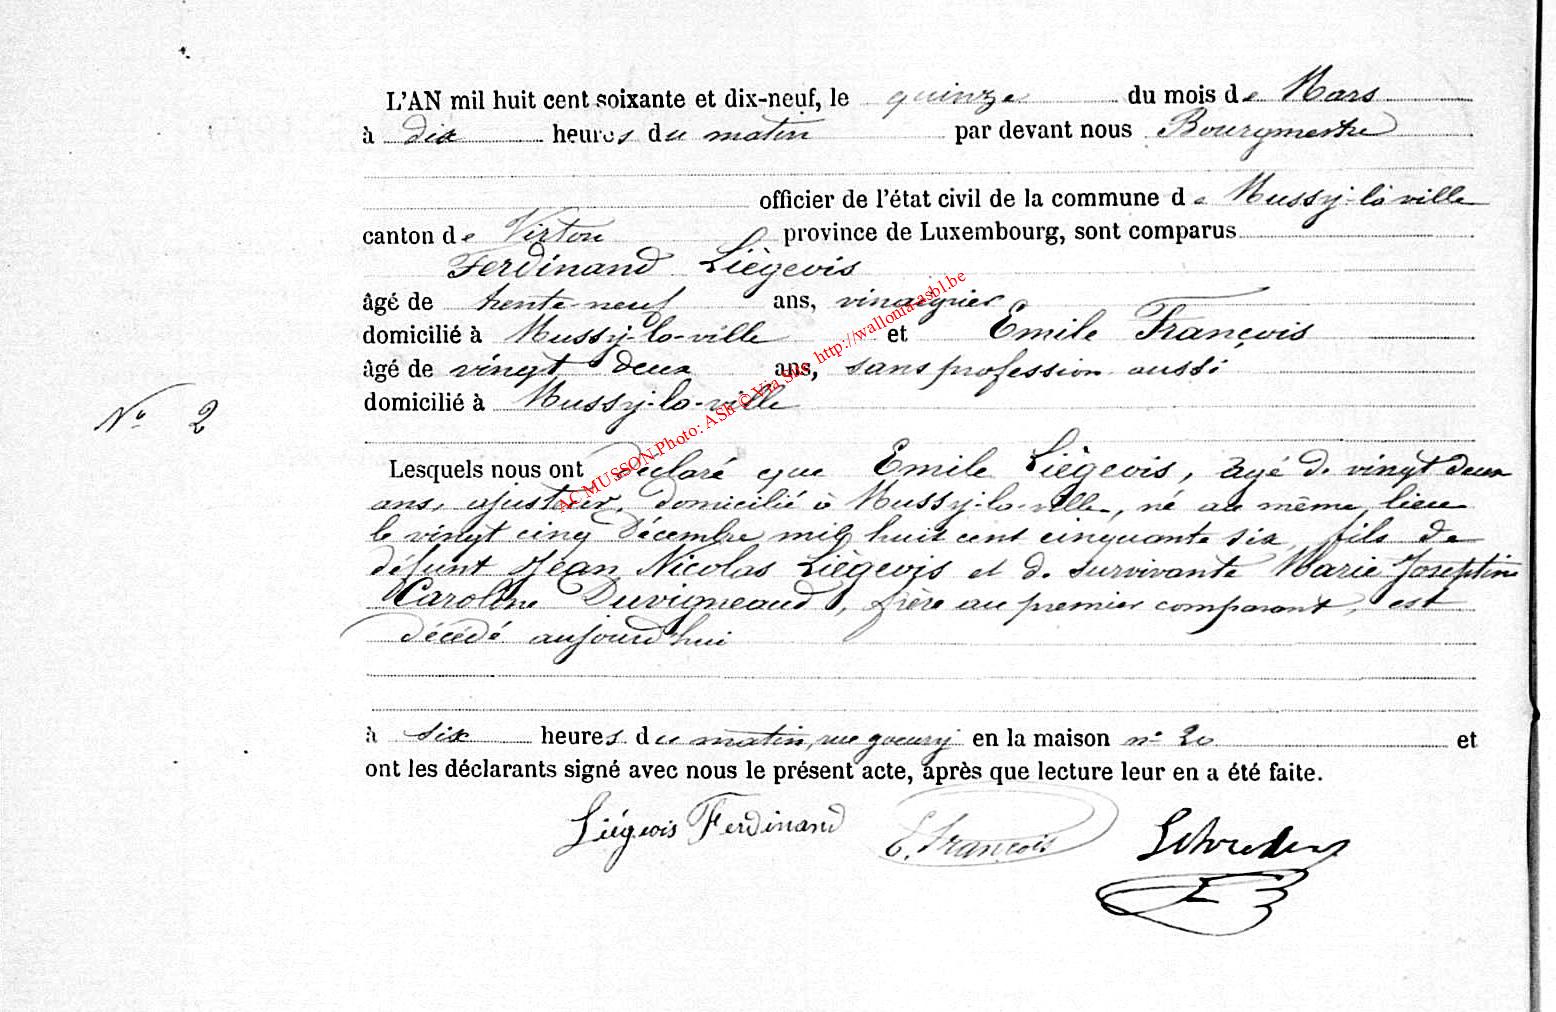 L'AN mil huit cent soixante et dix-neuf, le quinze du mois de Mars
à dix heures du matin par devant nous Bourgmestre
officier de l'état civil de la commune de Mussy-la-ville
canton de Virton province de Luxembourg, sont comparus
Ferdinand Liègeois
âgé de trente-neuf ans, vinaigrier
domicilié à Mussy-la-ville et Emile François
âgé de vingt deux ans, sans profession aussi
domicilié à Mussy-la-ville
N° 2
Lesquels nous ont déclaré que Emile Liègeois, âgé de vingt deux
ans, ajusteur, domicilié à Mussy-la-ville, né au même lieu
le vingt cinq Décembre mil huit cent cinquante six, fils de
défunt Jean Nicolas Liègeois et de survivante Marie Josephine
Caroline Duvigneaud, frère au premier comparant, est
décédé aujourd'hui
à six heures du matin, rue en la maison n° 20 et
ont les déclarants signé avec nous le présent acte, après que lecture leur en a été faite.
Liégeois Ferdinand E. François
AC MUSSON-Photo: ASh © Via Site http://wallonia-asbl.be